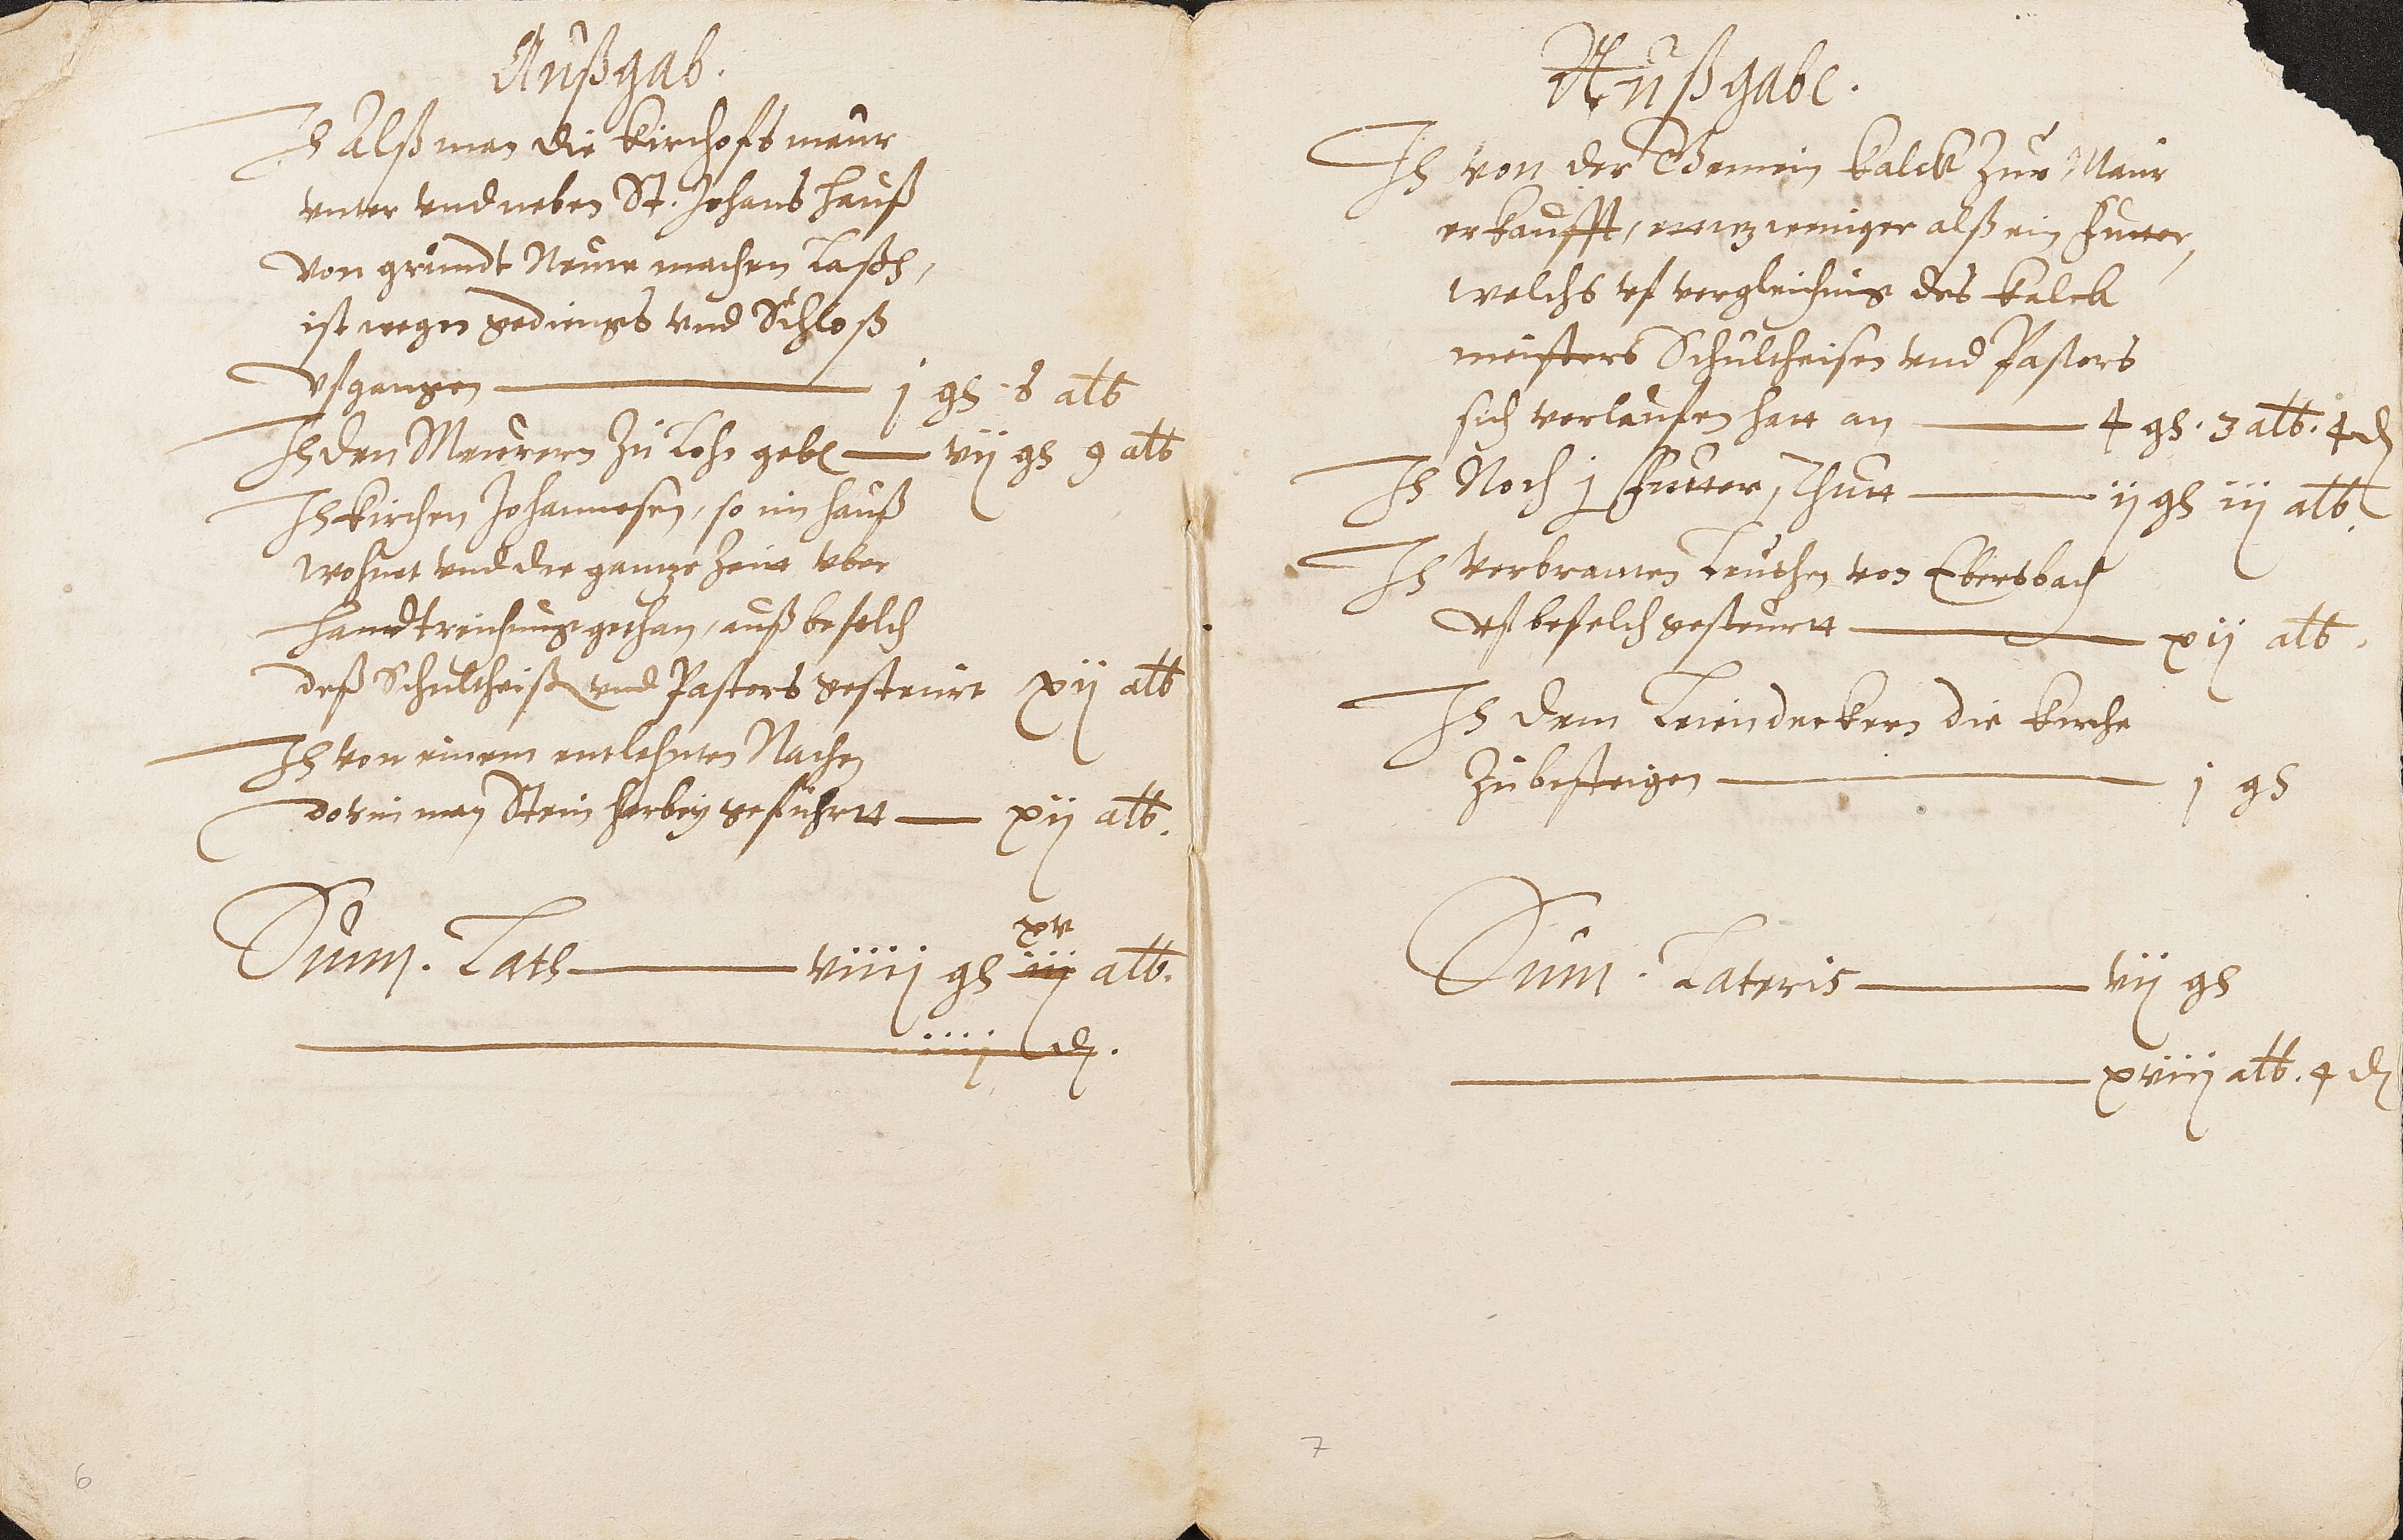 Außgab.
It Alß man die Kirchofs maur
unter und neben St. Johans hauß
von grundt Neuwe machen Laßen,
ist wegen gedings und Schloß
ufgangen — j gls 8 alb
It den Meurern zu Lohn geben — vij gls 9 alb
It Kirchen Johannesen, so im hauß
wohnet und die gantze Zeitt uber
handtreichung gethan, auß befelch
deß Schultheiß und Pastors gesteurt xij alb
It von einem entlehnten Nachen
dorin man Stein herbey geführtt — xij alb.
xv
Summ. Latis — viiij gls iij alb.
— iiij d.
6
Außgabe.
It von der Gemein Kalck Zur Maur
erkaufft, weniger alß ein Futter,
welchs uf vergleichung des Kalck
meisters Schultheisen und Pastors
sich verlaufen hatt an — 4 gls. 3 alb. 4 d
It Noch j Futter, thutt — ij gls iij alb.
It verbranten Leuthen von Ebersbach
uf befelch gesteurtt — xij alb.
It dem Leiendeckern die Kirche
Zubesteigen — j gls
Sum. Lateris — vij gls
— xviij alb. 4 d
7